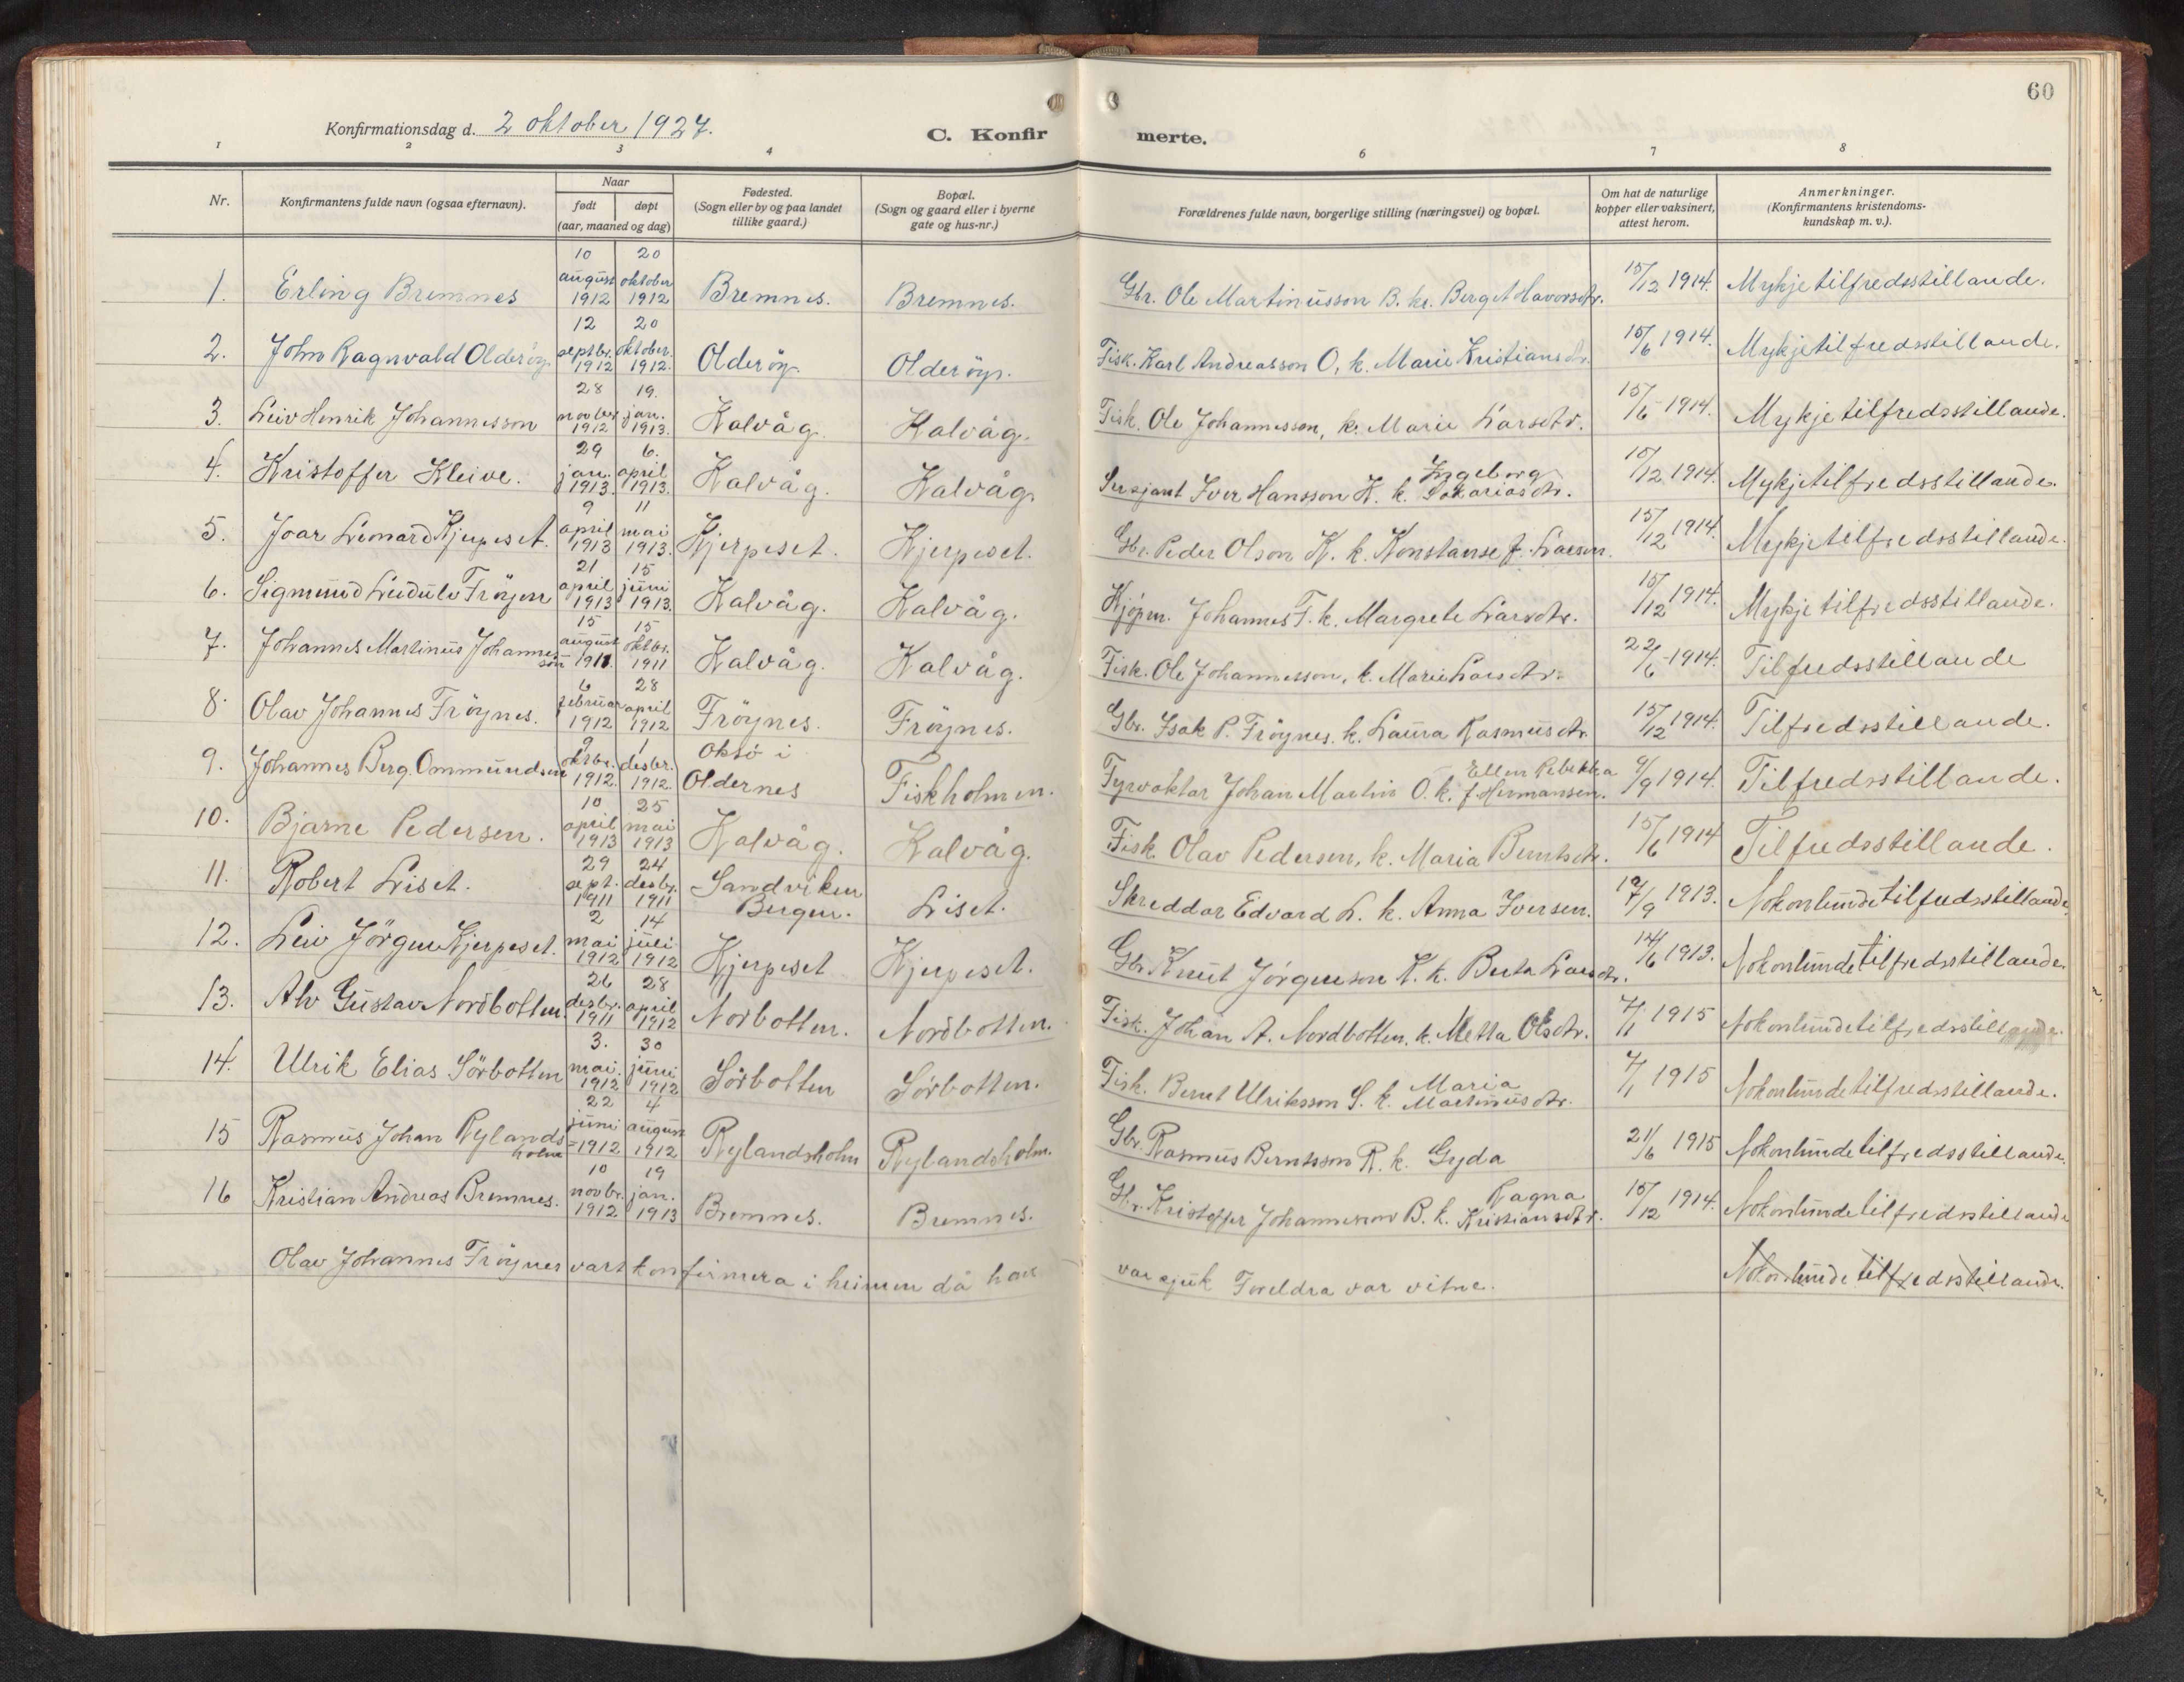 60
Konfirmationsdag d. 2 oktober 1927.
C. Konfirmerte.
1 2 3 4 6 7 8
Nr.
Konfirmantens fulde navn (ogsaa efternavn).
Naar
født døpt
(aar, maaned og dag)
Fødested.
(Sogn eller by og paa landet
tillike gaard.)
Bopæl.
(Sogn og gaard eller i byerne
gate og hus-nr.)
Forældrenes fulde navn, borgerlige stilling (næringsvei) og bopæl.
Om hat de naturlige
kopper eller vaksinert,
attest herom.
Anmerkninger.
(Konfirmantens kristendoms-
kundskap m. v.).
1. Erling Bremnes 10 august 1912 20 oktober 1912 Bremnes. Bremnes. Gbr. Ole Martinusson B. kr. Berget Havorsdtr. 15/12 1914. Mykje tilfredsstillande.
2. John Ragnvald Olderöy. 12 septbr. 1912 20 oktober. 1912. Olderöy. Olderöy. Fisk. Karl Andreasson O, k. Marie Kristiansdtr. 15/6 1914. Mykje tilfredsstillande.
3. Leiv Henrik Johannesson 28 novber 1912 19. jan. 1913. Kalvåg. Kalvåg. Fisk. Ole Johannesson, k. Marie Larsdtr. 15/6 1914. Mykje tilfredsstillande.
4. Kristoffer Kleive. 29 jan. 1913. 6. april 1913. Kalvåg. Kalvåg. Sersjant Iver Hansson K. k. Ingeborg Sakariasdtr. 15/12 1914. Mykje tilfredsstillande.
5. Joar Leonard Kjerpeset. 9 april 1913 11 mai 1913. Kjerpeset. Kjerpeset. Gbr. Peder Olson K. k. Konstanse f. Larsen. 15/12 1914. Mykje tilfredsstillande.
6. Sigmund Leidulv Fröyen 21 april 1913 15 juni 1913. Kalvåg. Kalvåg. Kjøpm. Johannes F. k. Margrete Larsdtr. 15/12 1914. Mykje tilfredsstillande.
7. Johannes Martinus Johannesson 15 august 1911. 15 oktbr. 1911 Kalvåg. Kalvåg. Fisk. Ole Johannesson, k. Marie Larsdtr. 22/6 1914. Tilfredsstillande
8. Olav Johannes Fröynes. 6 februar 1912 28 april 1912 Fröynes. Fröynes. Gbr. Isak P. Fröynes. k. Laura Rasmusdtr. 15/12 1914. Tilfredsstillande.
9. Johannes Berg. Ommundsen 9 oktbr. 1912. 1 desbr. 1912. Oksö i Oldernes Fiskholmen. Fyrvoktar Johan Martin O. k. Ellen Rebekka f. Hermansen. 9/9 1914. Tilfredsstillande.
10. Bjarne Pedersen. 10 april 1913 25 mai 1913 Kalvåg. Kalvåg. Fisk. Olav Pedersen, k. Maria Berntsdtr. 15/6 1914 Tilfredsstillande.
11. Robert Liset. 29 sept. 1911 24 desbr. 1911 Sandviken Bergen. Liset. Skreddar Edvard L. k. Anna Iversen. /9 1913. Nokonlunde tilfredsstillande.
12. Leiv Jörgen Kjerpeset. 2 mai 1912 14 juli 1912 Kjerpeset Kjerpeset. Gbr. Knut Jörgenson K. k. Berta Larsdtr. 14/6 1913. Nokonlunde tilfredsstillande.
13. Alv Gustav Nordbotten. 26 desbr. 1911 28 april 1912 Norbotten. Nordbotten. Fisk. Johan A. Nordbotten. k. Metta Olsdtr. 7/1 1915 Nokonlunde tilfredsstillande.
14. Ulrik Elias Sörbotten 3. mai. 1912 30 juni 1912 Sörbotten Sörbotten. Fisk. Bernt Ulriksson S. k. Maria Martinusdtr. 7/1 1915 Nokonlunde tilfredsstillande.
15 Rasmus Johan Rylandsholm 22 juni 1912 4 august 1912 Rylandsholm Rylandsholm. Gbr. Rasmus Berntsson R. k. Gyda 21/6 1915 Nokonlunde tilfredsstillande.
16 Kristian Andreas Bremnes. 10 novbr. 1912 19 jan. 1913 Bremnes. Bremnes. Gbr. Kristoffer Johannesson B. k. Ragna Kristiansdtr. 15/12 1914. Nokonlunde tilfredsstillande
Olav Johannes Fröynes vart konfirmera i heimen då han var sjuk Foreldra var vitne. Nokonlunde tilfredsstillande.